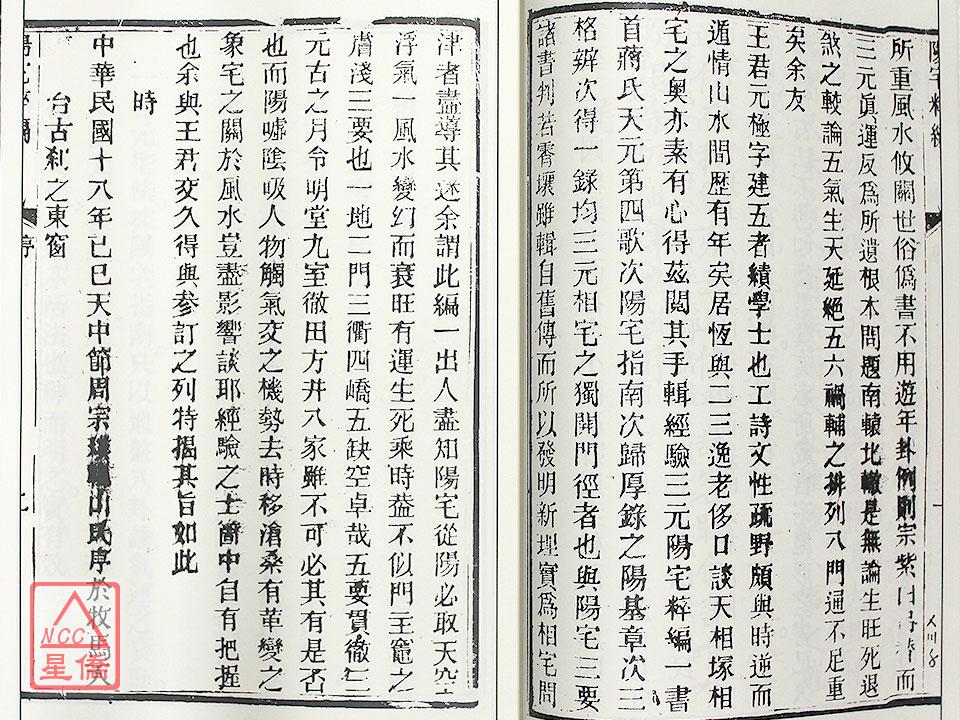 陽宅粹編
所重風水攸關世俗僞書不用遊年卦例則宗紫白而
三元眞運反爲所遺根本問題南轅北轍是無論生旺死退
煞之較論五氣生天延絕五六禍輔之排列八門通不足重
矣余友
王君元極字建五者績學士也工詩文性疏野頗與時逆而
遁情山水間歷有年矣居恆與二三逸老侈口談天相塚相
宅之奧亦素有心得茲閱其手輯經驗三元陽宅粹編一書
首蔣氏天元第四歌次陽宅指南次歸厚錄之陽基章次三
格辨次得一錄均三元相宅之獨開門徑者也與陽宅三要
諸書判若霄壤雖輯自舊傳而所以發明新理實爲相宅問
津者盡導其迷余謂此編一出人盡知陽宅從陽必取天空
浮氣一風水變幻而衰旺有運生死乘時葢不似門王竈之
膚淺三要也一地二門三衢四嶠五缺空卓哉五要貫徹三
元古之月令明堂九室徹田方井八家雖不可必其有是否
也而陽噓陰吸人物觸氣交之機勢去時移滄桑有革變之
象宅之關於風水豈盡影響談耶經驗之士箇中自有把握
也余與王君交久得與參訂之列特揭其旨如此
時
中華民國十八年己巳天中節周宗山氏序於牧馬
台古刹之東窗
序
NCC
星僑